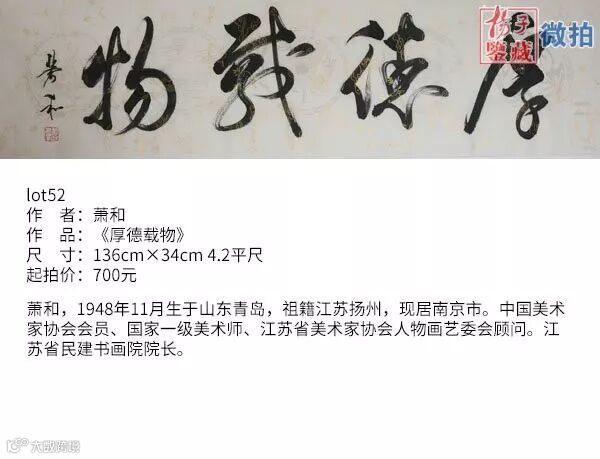 厚德载物
萧和
扬子
鉴藏
微拍
lot52
作 者：萧和
作 品：《厚德载物》
尺 寸：136cm×34cm 4.2平尺
起拍价：700元
萧和，1948年11月生于山东青岛，祖籍江苏扬州，现居南京市。中国美术
家协会会员、国家一级美术师、江苏省美术家协会人物画艺委会顾问。江
苏省民建书画院院长。
大数跨境